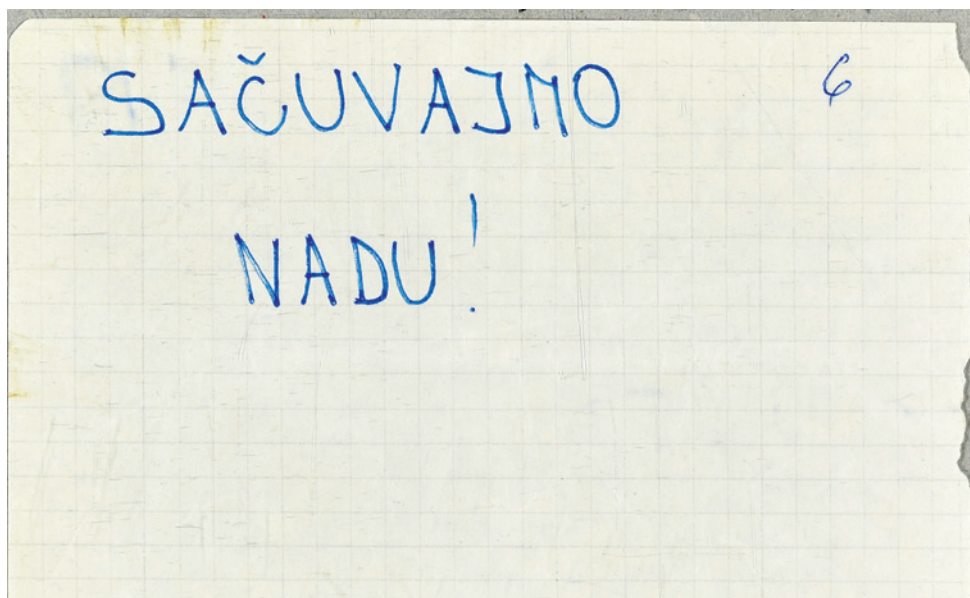 SAČUVAJMO 6
NADU!